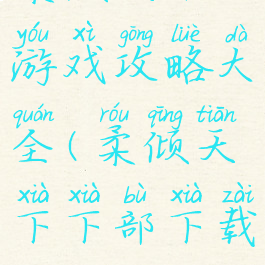 yóu xì gōng lüè dà
游戏攻略大
quán róu qīng tiān
全(柔倾天
xià xià bù xià zài
下下部下载